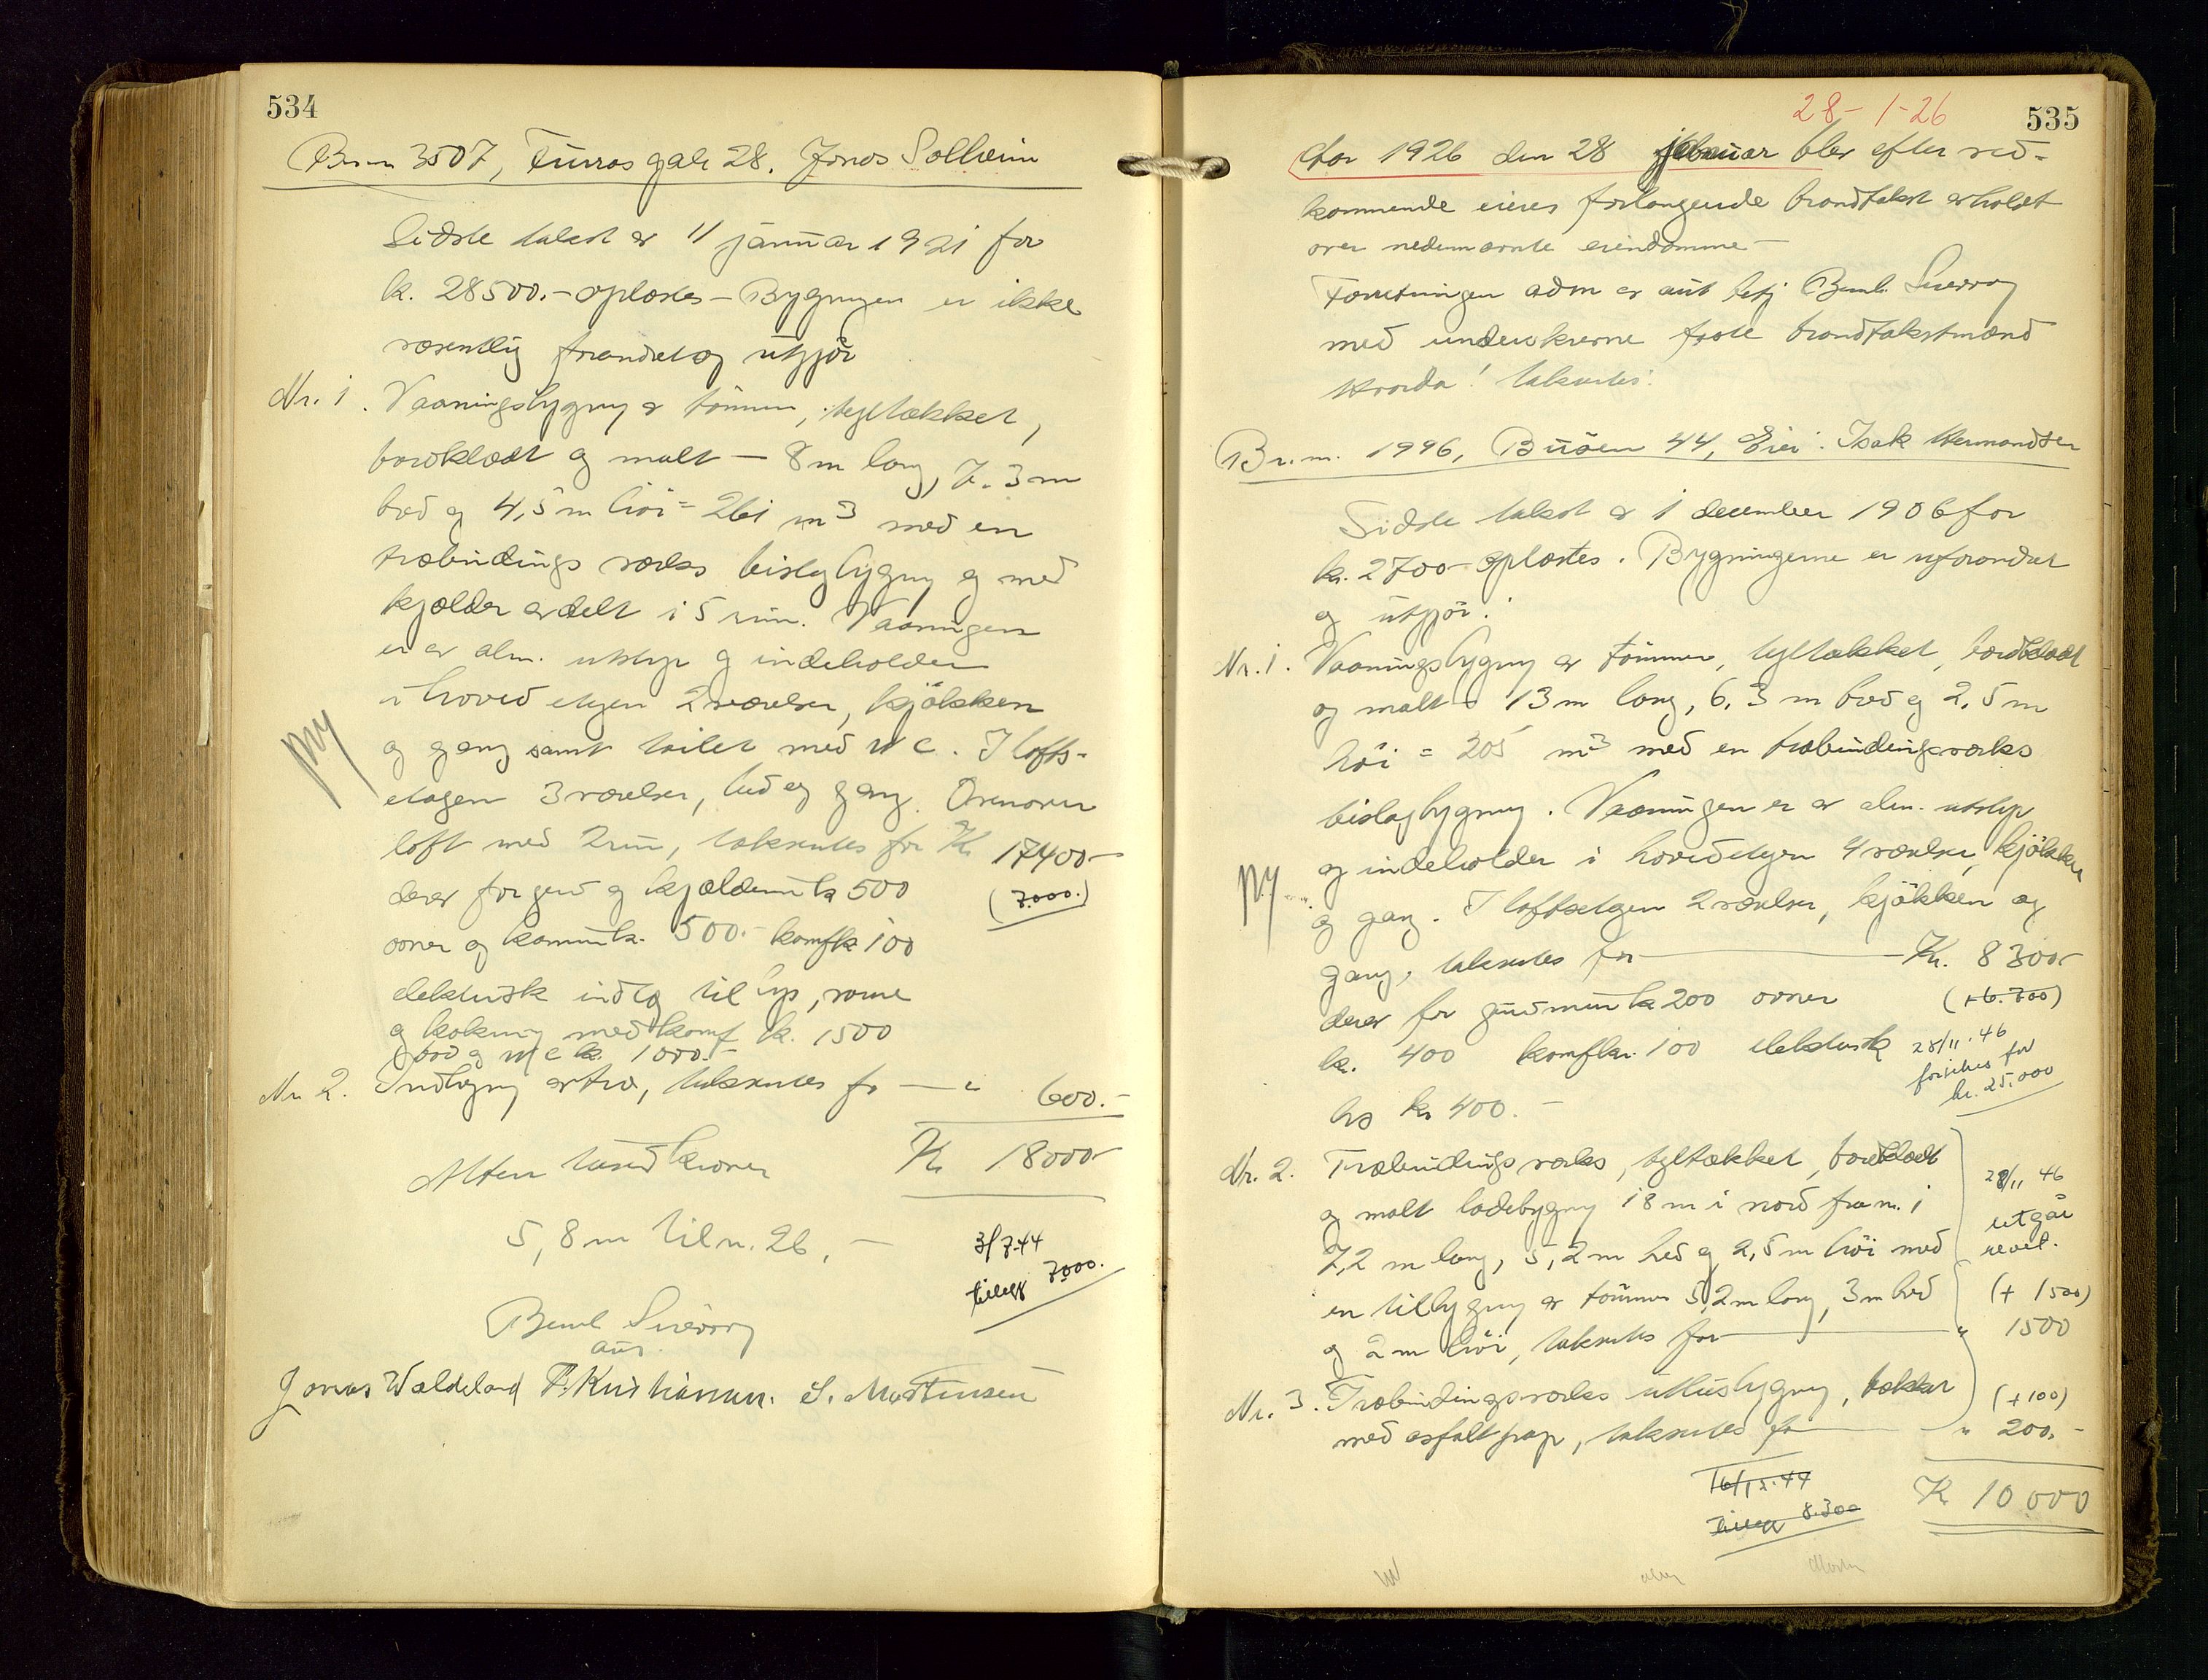 534
Br.nr 3507, Furras gate 28. Jonas Solheim
Sidste takst er 11 januar 1921 for
k. 28500.- oplæstes - Bygningen er ikke
væsentlig forandret og utgjör
Nr. 1. Vaaningsbygning av tömmer, tegltækket,
bordklædt og malt - 8 m lang, 7.3 m
bred og 4,5 m höi = 261 m3 med en
træbindings værks bislagbygning og med
kjælder avdelt i 5 rum. Vaaningen
er av alm. utstyr og indeholder
i hoved etagen 2 værelser, kjökken
ny
og gang samt toilet med W C. I lofts-
etagen 3 værelser, bad og gang. Ovenover
loft med 2 rum, takseres for Kr 17400-
derav for grund og kjældermur k 500
(7.000.)
ovner og kamin k. 500.- komf k 100
elektrisk indlæg til lys, varme
og kokning med komf k. 1500
bad og W C k. 1000.-
Nr 2. Indbygning av træ, takseres for — " 600.-
Atten tusend kroner Kr 18000-
5,8 m til n. 26, -
3/7-44
tillegg 7000.
Bernh Sverdrup
aut.
Jonas Waldeland F. Kristiansen. S. Martinsen
28-1-26
535
Aar 1926 den 28 januar blev efter ved-
kommende eieres forlangende brandtakst avholdt
over nedennævnte eiendomme -
Forretningen adm av aut betj Bernh. Sverdrup
med undertegnede faste brandtakstmænd
Hvorda! takseres:
Br.nr. 1996, Buöen 44, Eier: Isak Hermandsen
Sidste takst er 1 december 1906 for
kr. 2700- oplæstes. Bygningerne er uforandret
og utgjör:
Nr. 1. Vaaningsbygning av tömmer, tegltækket, bordklædt
og malt - 13 m lang, 6,3 m bred og 2,5 m
höi = 205 m3 med en træbindingsværks
bislagbygning. Vaaningen er av alm. utstyr
og indeholder i hovedetagen 4 værelser, kjökken
ny
og gang. I loftsetagen 2 værelser, kjökken og
gang, takseres for — Kr. 8300-
derav for grundmur k 200 ovner
(+6.700)
kr. 400 komf kr. 100 elektrisk
28/11. 46
forsikres for
kr. 25.000
lys kr 400.-
Nr. 2. Træbindings værks, tegltækket, bordklædt
og malt ladebygning 18 m i nord fra nr. 1
28/11 46
utgår
revet.
7,2 m lang, 5,2 m bred og 2,5 m höi med
en tilbygning av tömmer 5,2 m lang, 3 m bred
(+ 1500)
og 2 m höi, takseres for — " 1500
Nr. 3. Træbindingsværks uthusbygning, tækket
(+100)
med asfaltpap, takseres for — " 200.-
16/12.44
tillegg 8.300
Kr 10 000